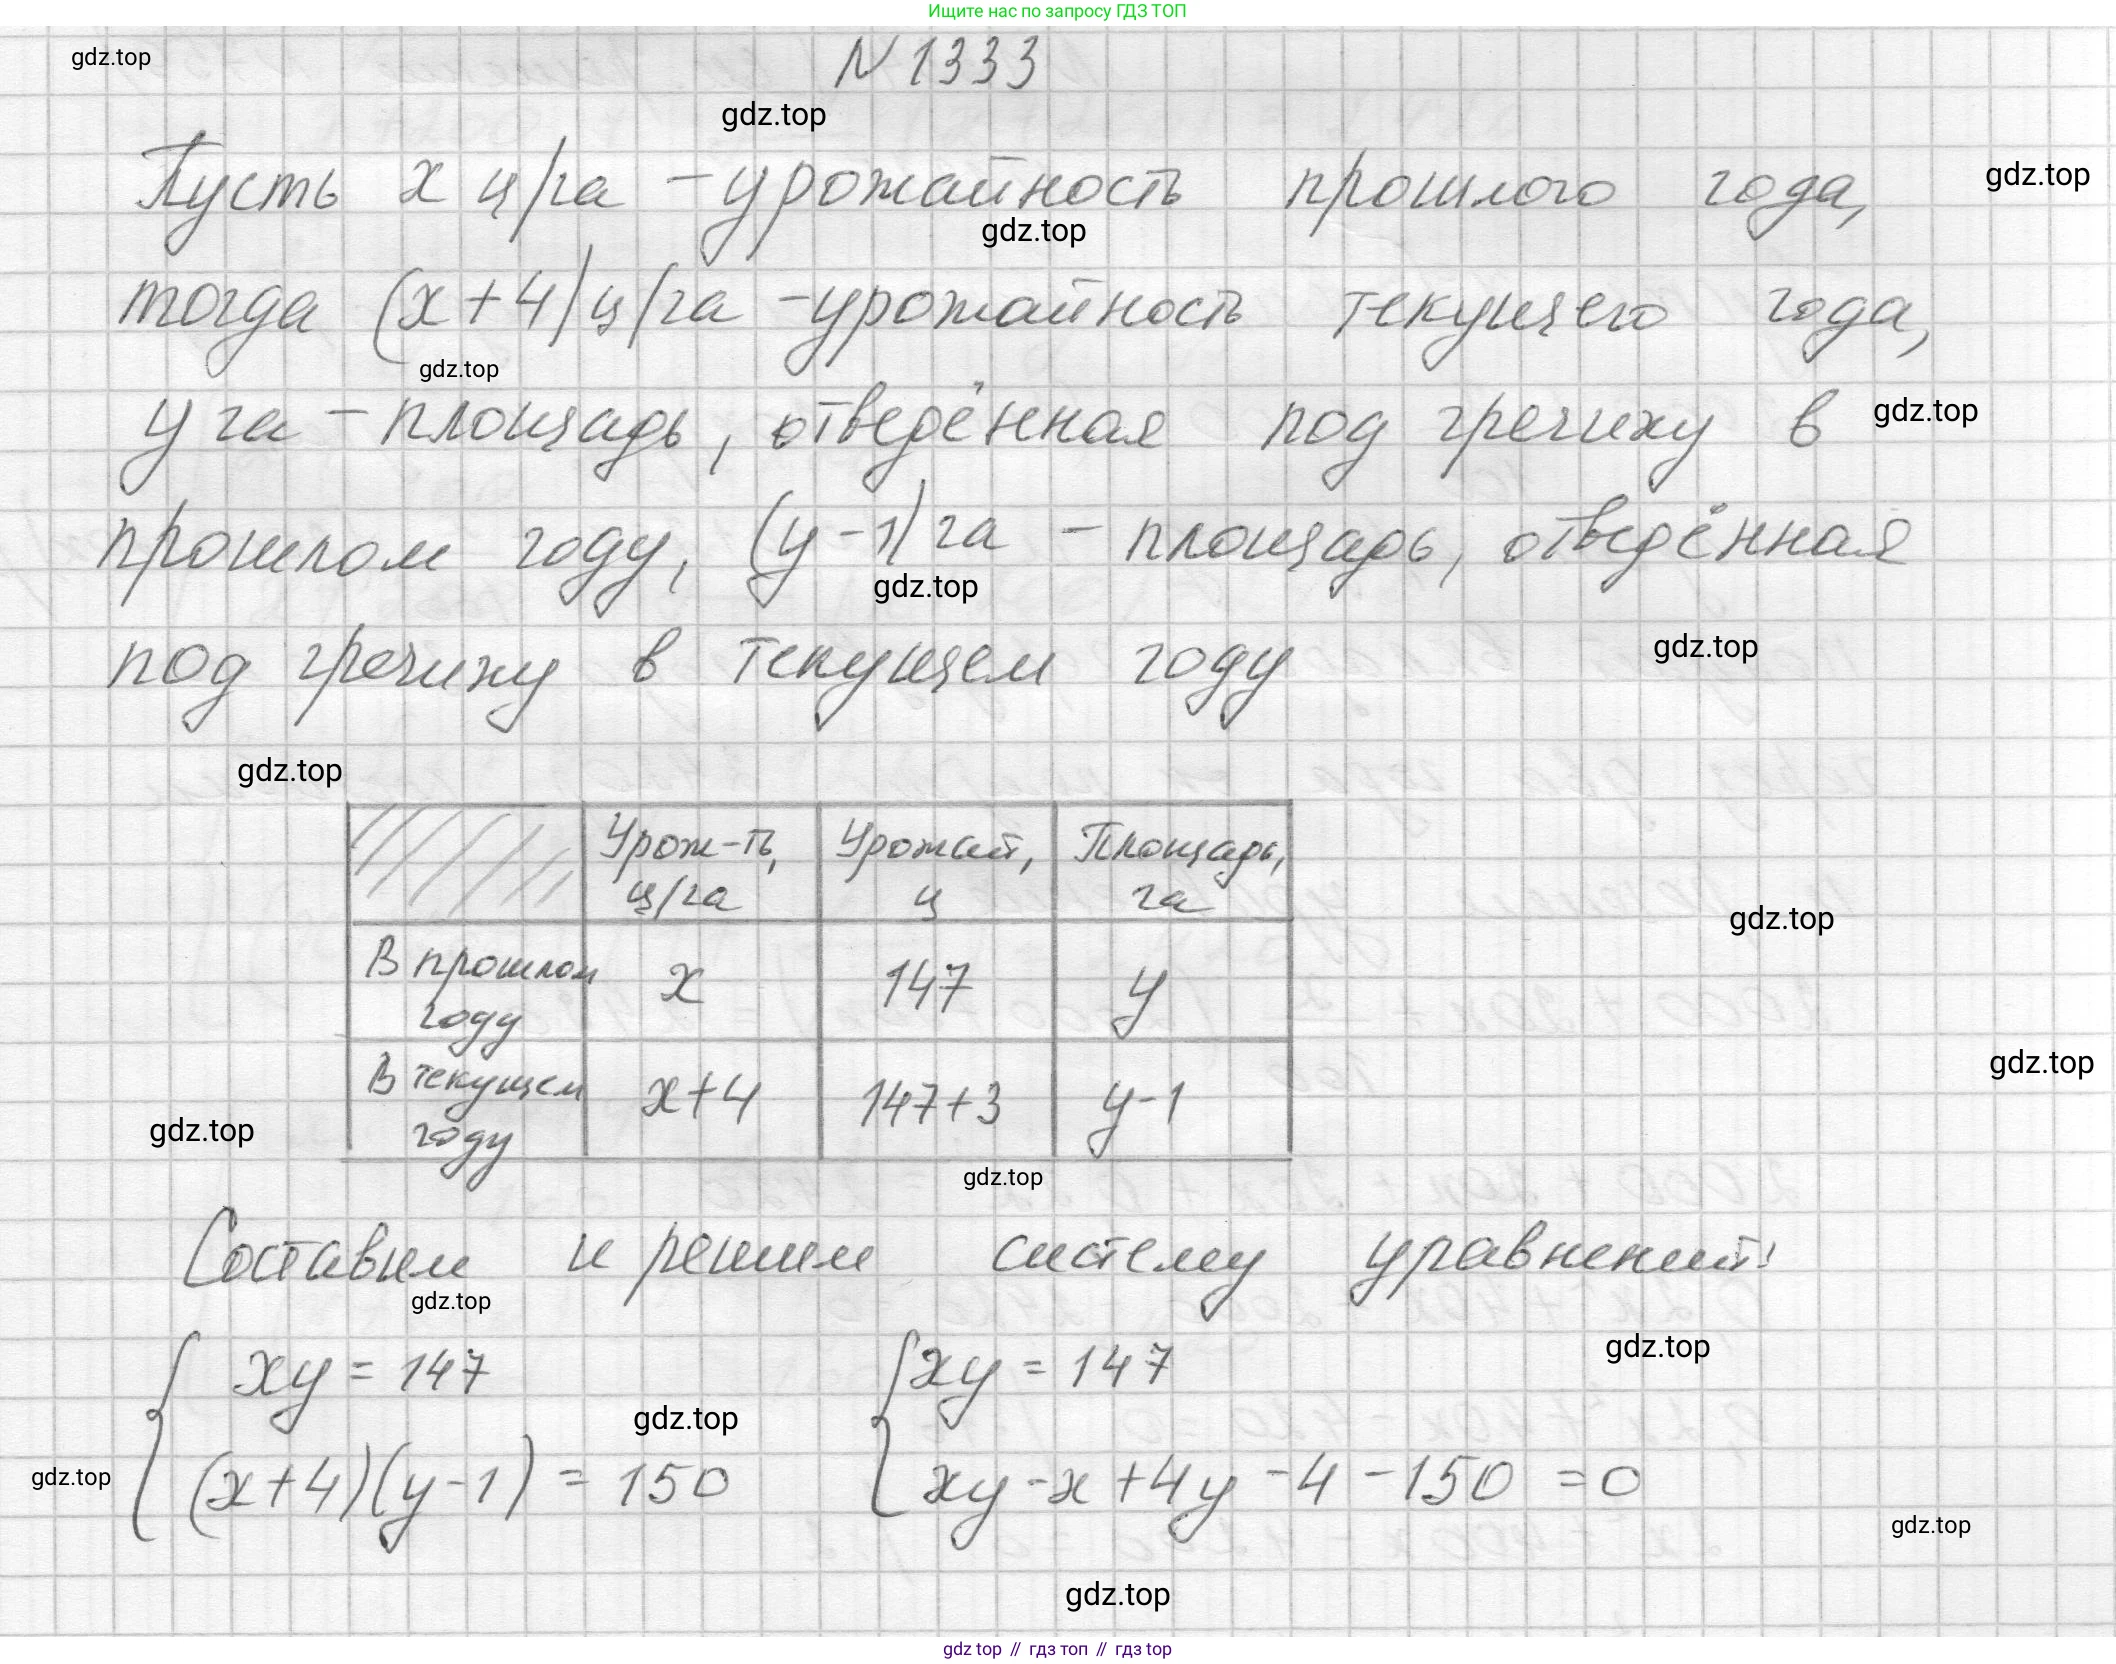 Ищите нас по запросу ГДЗ ТОП
gdz.top
N 1333
gdz.top
Пусть x ц/га – урожайность прошлого года,
gdz.top
gdz.top
тогда (x+4) ц/га – урожайность текущего года,
gdz.top
y га – площадь, отведённая под гречиху в
gdz.top
прошлом году, (y-1) га – площадь, отведённая
gdz.top
под гречиху в текущем году
gdz.top
gdz.top
Урож-ть, ц/га
Урожай, ц
Площадь, га
gdz.top
В прошлом году
x
147
y
gdz.top
В текущем году
x+4
147+3
y-1
gdz.top
gdz.top
Составим и решим систему уравнений:
gdz.top
xy = 147
xy = 147
gdz.top
gdz.top
(x+4)(y-1) = 150
xy - x + 4y - 4 - 150 = 0
gdz.top
gdz.top
gdz.top
gdz top // гдз топ // гдз top